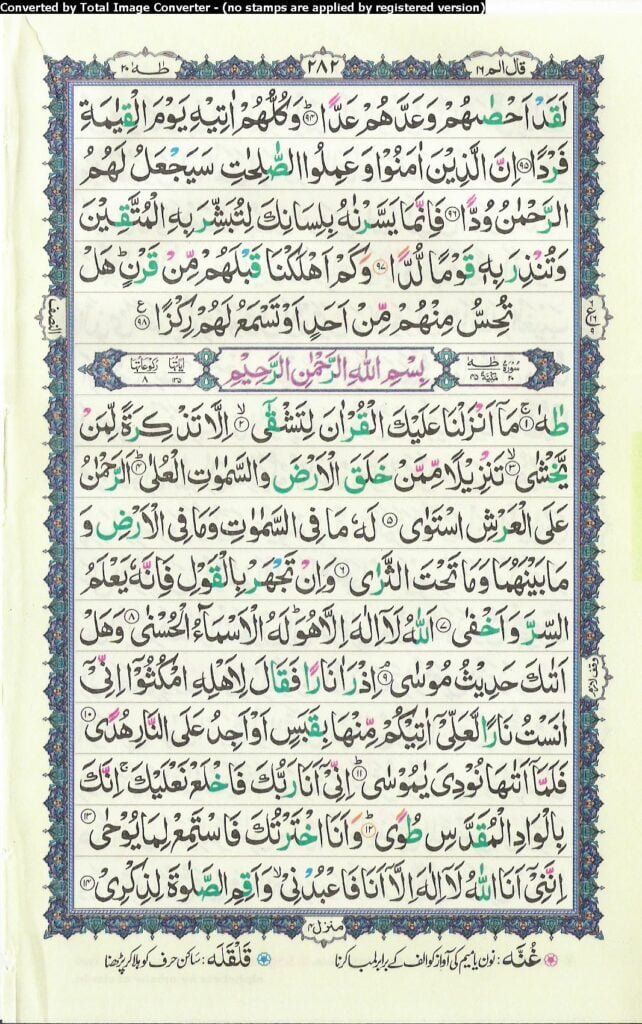 Converted by Total Image Converter - (no stamps are applied by registered version)
قال الم ١٦
٢٨٢
طٰهٰ ٢٠
لَقَدْ اَحْصٰىهُمْ وَعَدَّهُمْ عَدًّا ؕ‏﴿۹۴﴾ وَكُلُّهُمْ اٰتِيْهِ يَوْمَ الْقِيٰمَةِ
فَرْدًا ﴿۹۵﴾ اِنَّ الَّذِيْنَ اٰمَنُوْا وَعَمِلُوا الصّٰلِحٰتِ سَيَجْعَلُ لَهُمُ
الرَّحْمٰنُ وُدًّا ﴿۹۶﴾ فَاِنَّمَا يَسَّرْنٰهُ بِلِسَانِكَ لِتُبَشِّرَ بِهِ الْمُتَّقِيْنَ
وَتُنْذِرَ بِهٖ قَوْمًا لُّدًّا ﴿۹۷﴾ وَكَمْ اَهْلَكْنَا قَبْلَهُمْ مِّنْ قَرْنٍ ؕ هَلْ
تُحِسُّ مِنْهُمْ مِّنْ اَحَدٍ اَوْ تَسْمَعُ لَهُمْ رِكْزًا ﴿۹۸﴾ ع
النصف
سُوْرَةُ طٰهٰ مَكِّيَّةٌ
بِسْمِ اللّٰهِ الرَّحْمٰنِ الرَّحِيْمِ
اٰيَاتُهَا ١٣٥
رُكُوْعَاتُهَا ٨
طٰهٰ ۚ‏﴿۱﴾ مَاۤ اَنْزَلْنَا عَلَيْكَ الْقُرْاٰنَ لِتَشْقٰٓى ۙ‏﴿۲﴾ اِلَّا تَذْكِرَةً لِّمَنْ
يَّخْشٰى ۙ‏﴿۳﴾ تَنْزِيْلًا مِّمَّنْ خَلَقَ الْاَرْضَ وَالسَّمٰوٰتِ الْعُلٰى ؕ‏﴿۴﴾ اَلرَّحْمٰنُ
عَلَى الْعَرْشِ اسْتَوٰى ﴿۵﴾ لَهٗ مَا فِى السَّمٰوٰتِ وَمَا فِى الْاَرْضِ وَ
مَا بَيْنَهُمَا وَمَا تَحْتَ الثَّرٰى ﴿۶﴾ وَاِنْ تَجْهَرْ بِالْقَوْلِ فَاِنَّهٗ يَعْلَمُ
السِّرَّ وَاَخْفٰى ﴿۷﴾ اَللّٰهُ لَاۤ اِلٰهَ اِلَّا هُوَ ؕ لَهُ الْاَسْمَآءُ الْحُسْنٰى ﴿۸﴾ وَهَلْ
اَتٰىكَ حَدِيْثُ مُوْسٰى ۘ‏﴿۹﴾ اِذْ رَاٰ نَارًا فَقَالَ لِاَهْلِهِ امْكُثُوْۤا اِنِّىْۤ
وقف لازم
اٰنَسْتُ نَارًا لَّعَلِّىْۤ اٰتِيْكُمْ مِّنْهَا بِقَبَسٍ اَوْ اَجِدُ عَلَى النَّارِ هُدًى ﴿۱۰﴾
فَلَمَّاۤ اَتٰىهَا نُوْدِىَ يٰمُوْسٰى ؕ‏﴿۱۱﴾ اِنِّىْۤ اَنَا رَبُّكَ فَاخْلَعْ نَعْلَيْكَ ۚ اِنَّكَ
بِالْوَادِ الْمُقَدَّسِ طُوًى ؕ‏﴿۱۲﴾ وَاَنَا اخْتَرْتُكَ فَاسْتَمِعْ لِمَا يُوْحٰى ﴿۱۳﴾
اِنَّنِىْۤ اَنَا اللّٰهُ لَاۤ اِلٰهَ اِلَّاۤ اَنَا فَاعْبُدْنِىْ ۙ وَاَقِمِ الصَّلٰوةَ لِذِكْرِىْ ﴿۱۴﴾
منزل ۴
غُنَّه: نون یا میم کی آواز کو الف کے برابر لمبا کرنا
قَلْقَلَه: ساکن حرف کو ہلا کر پڑھنا